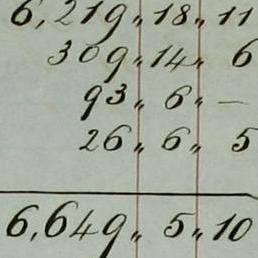 6,219 „ 18 „ 11
309 „ 14 „ 6
93 „ 6 „ —
26 „ 6 „ 5
6,649 „ 5 „ 10